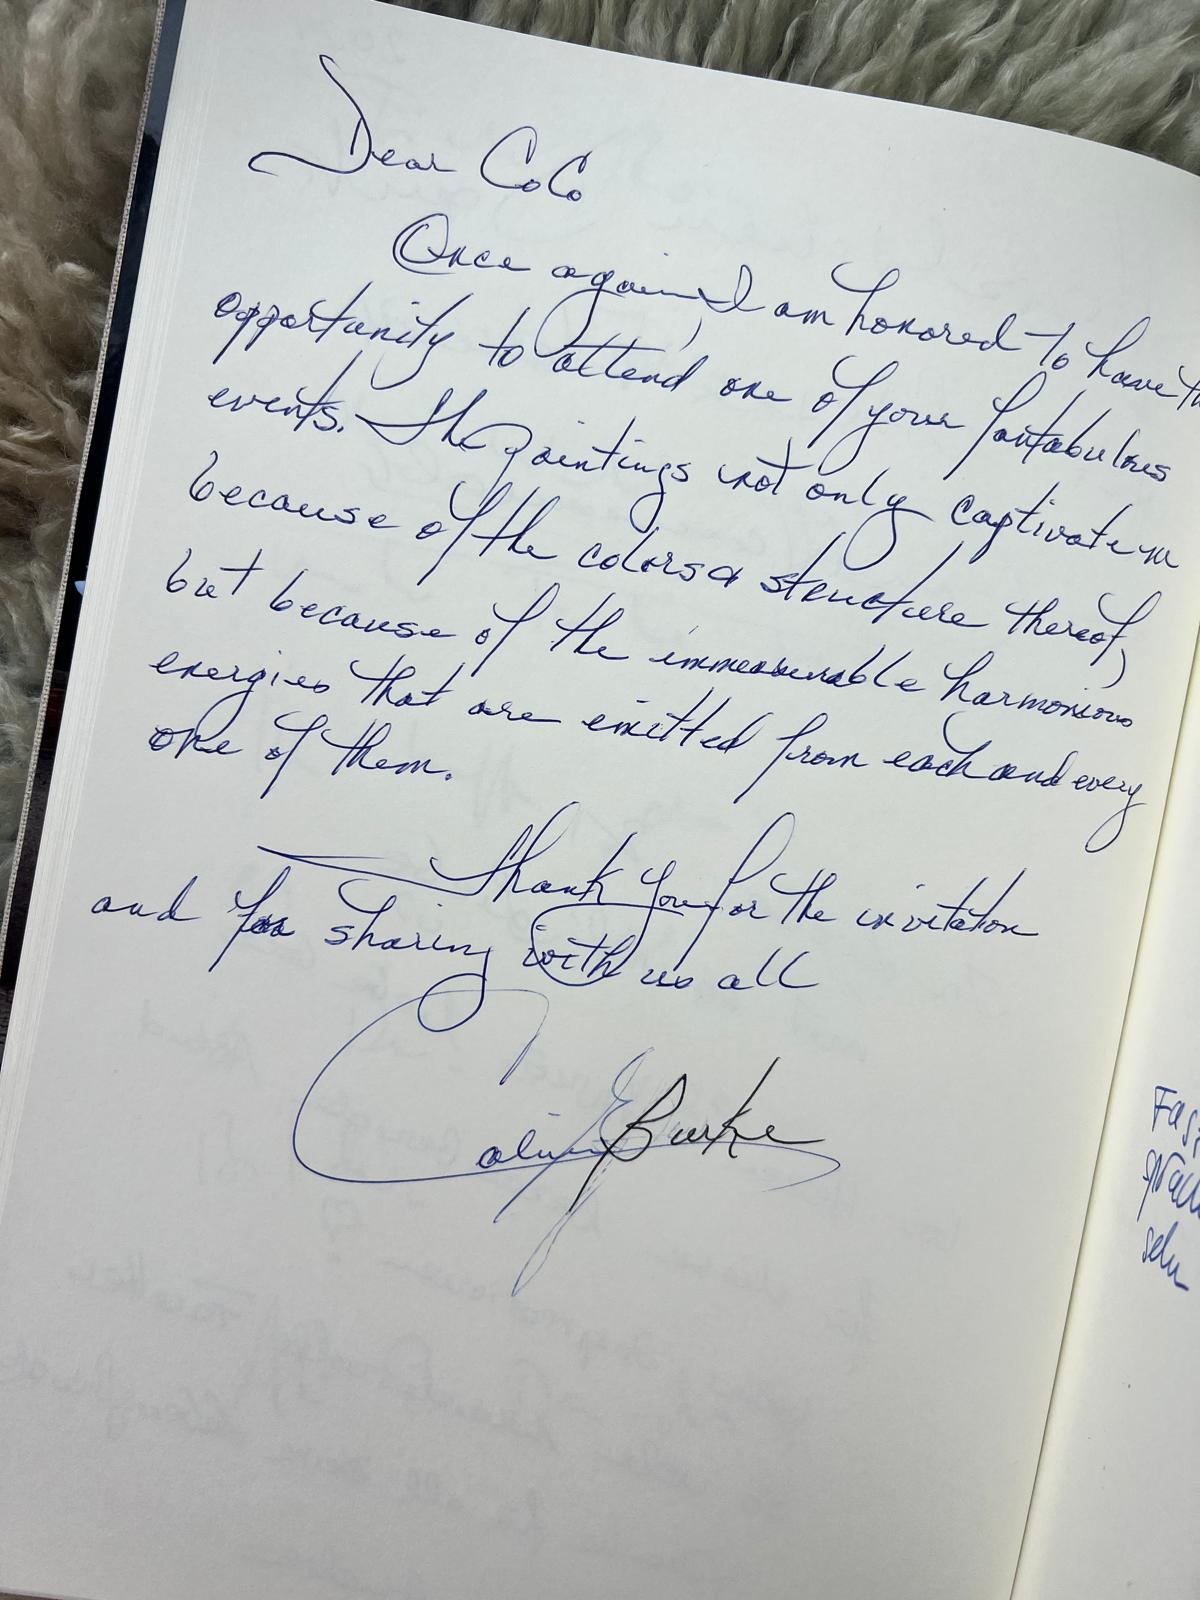 Dear CoCo
Once again, I am honored to have th
opportunity to attend one of your fantabulous
events. The paintings not only captivate m
because of the colors & structure thereof,
but because of the immeasurable harmonious
energies that are emitted from each and every
one of them.
Thank you for the invitation
and for sharing with us all
Burke
Fas
sprach
sehr